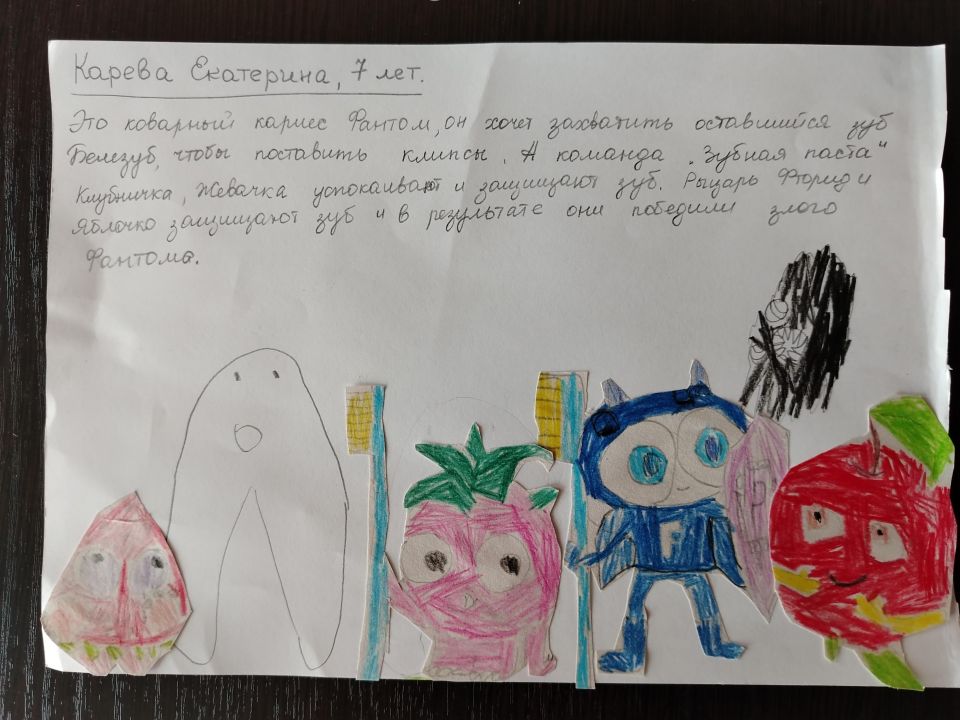 Карева Екатерина, 7 лет.
Это коварный кариес Фантом, он хочет захватить оставшийся зуб
Белезуб, чтобы поставить клипсы. А команда „Зубная паста"
Клубничка, Жевачка успокаивают и защищают зуб. Рыцарь Фторид и
Яблочко защищают зуб и в результате они победили злого
Фантома.
F